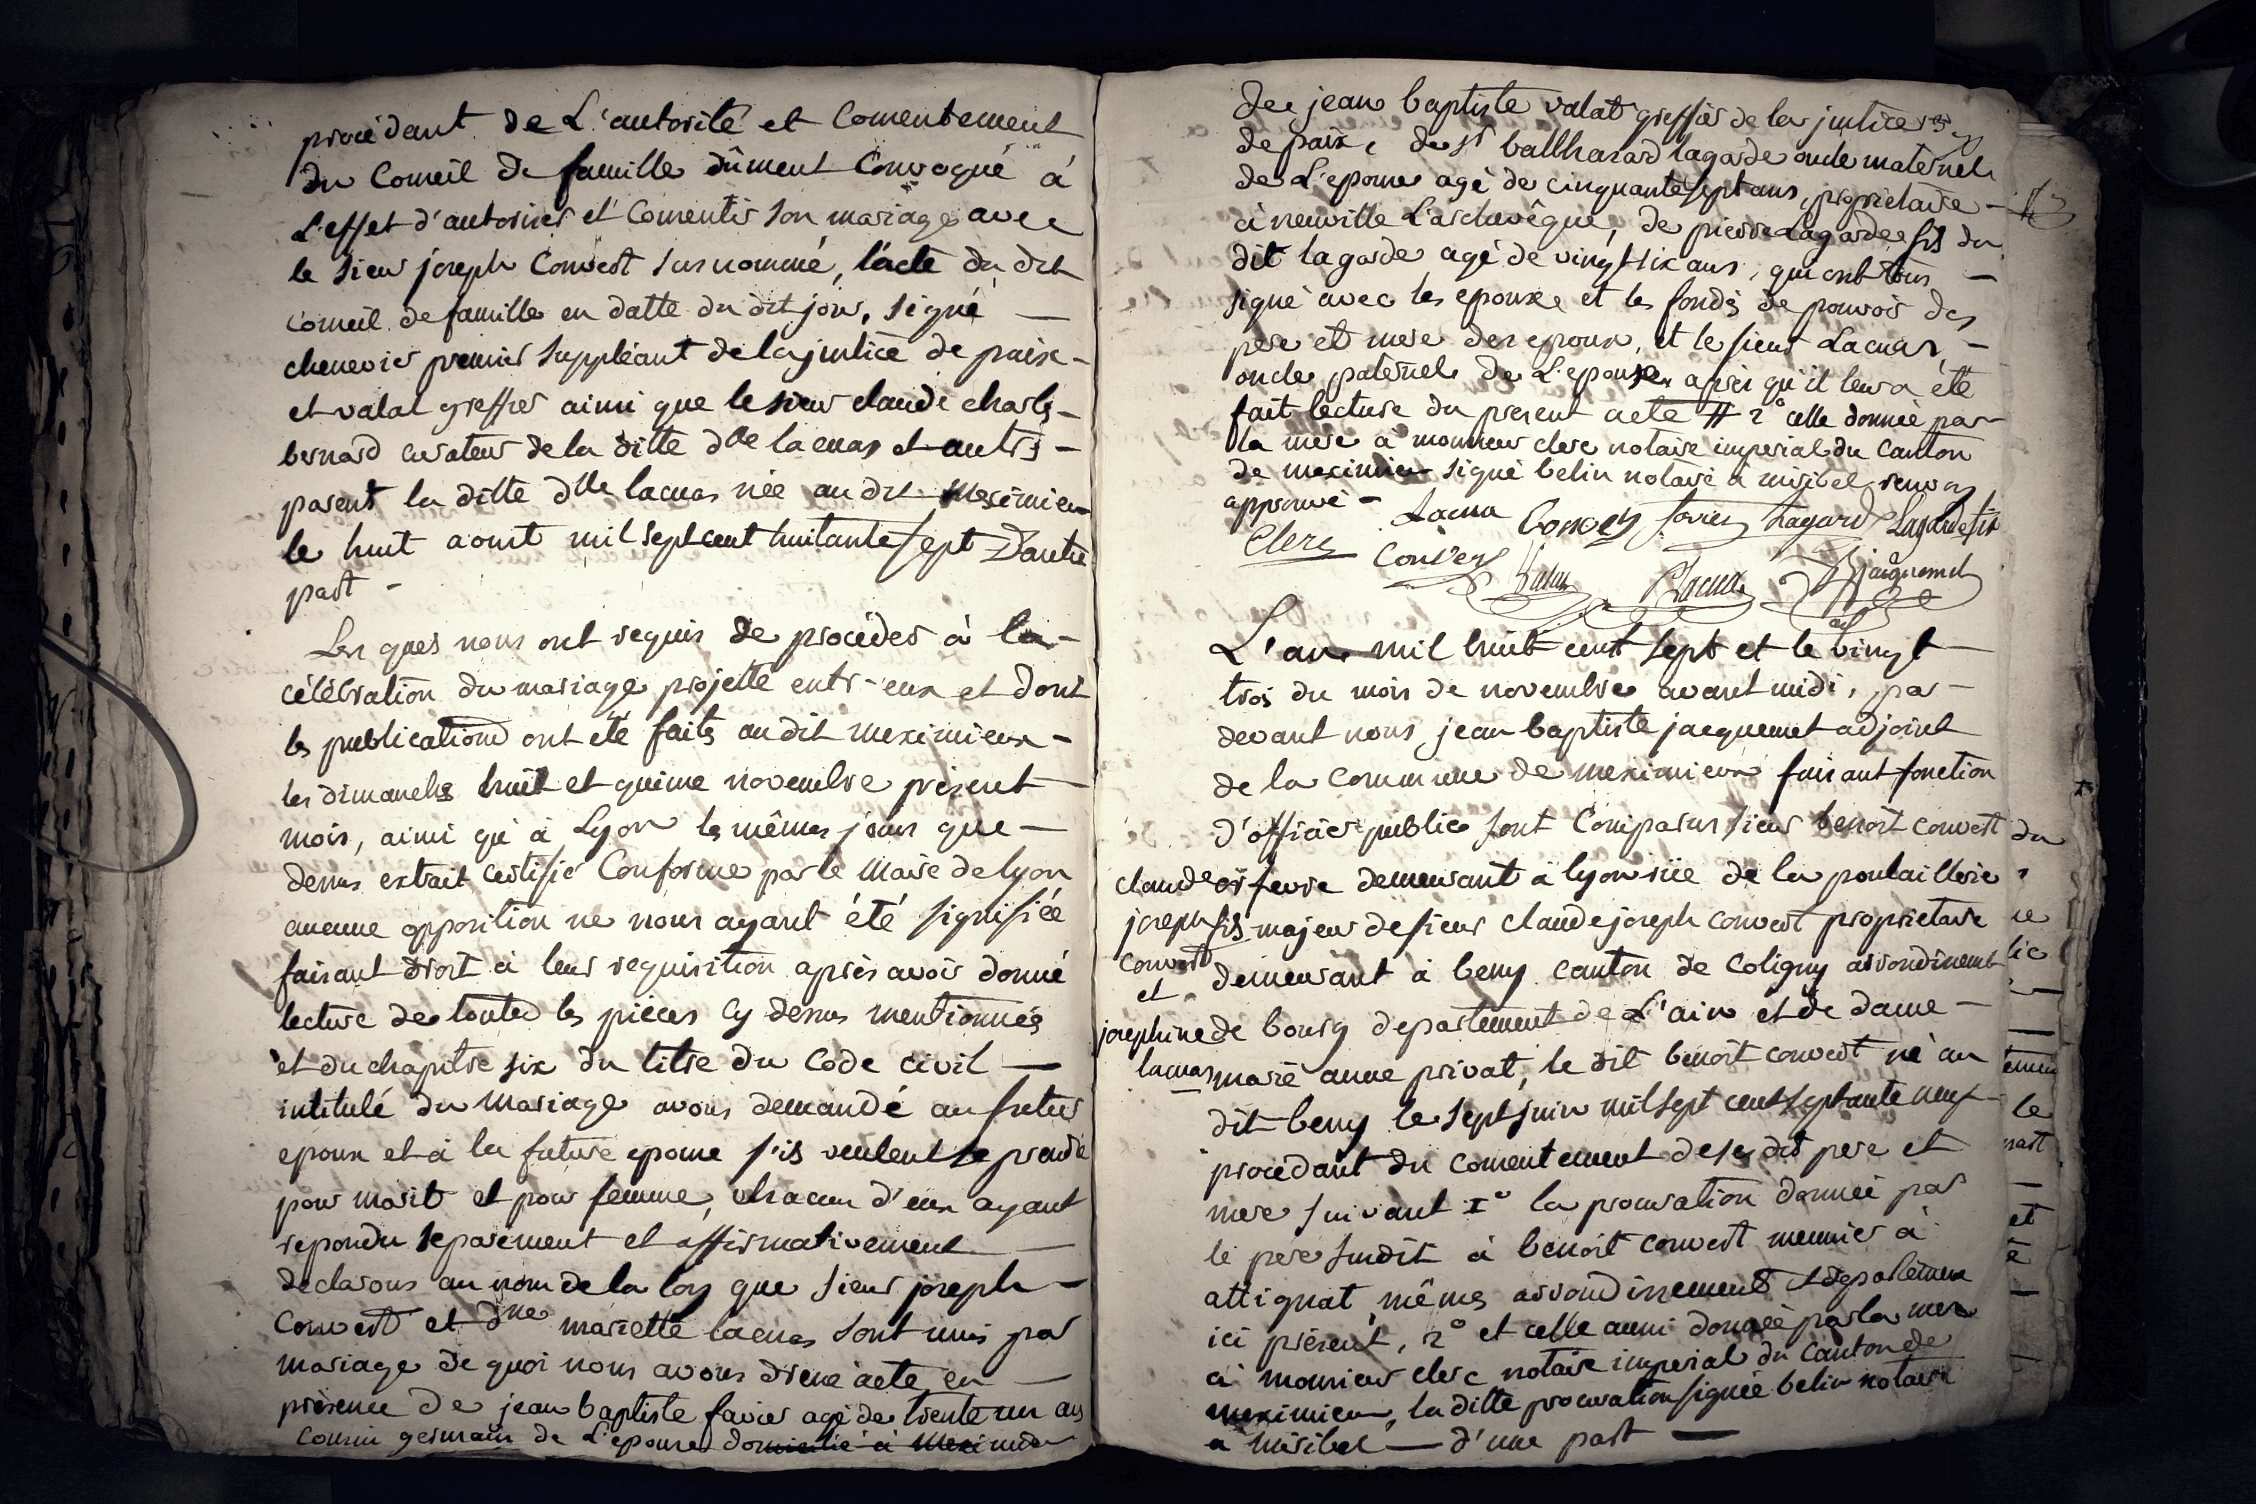 procédant de L'autorité et Consentement
du Conseil de famille dûment Convoqué à
L'effet d'autoriser et Consentir son mariage avec
le sieur joseph Convert susnommé, l'acte du dit
Conseil de famille en datte du dit jour, signé
chenevier premier suppléant de la justice de paix
et valat greffier ainsi que le sieur claude charles
bernard curateur de la ditte dlle lacuas et autres
parent la ditte dlle lacuas née au dit meximieux
le huit aoust mil sept cent huitante sept D'autre
part
Les quels nous ont requis de procéder à la
célébration du mariage projetté entr-eux et dont
les publications ont été faites au dit meximieux
les dimanche huit et quinze novembre present
mois, ainsi qu'à Lyon les mêmes jours que
dessus extrait certifié Conforme par le Maire de lyon
aucune opposition ne nous ayant été signifiée
faisant droit à leur requisition après avoir donné
lecture de toutes les pièces cy dessus mentionnés
et du chapitre six du titre du Code civil
intitulé du Mariage avons demandé au futur
epoux et à la future epouse s'ils veulent se prendre
pour marit et pour femme, chacun d'eux ayant
repondu séparement et affirmativement
declarons au nom de la loy que sieur joseph
Convert et dlle mariette lacuas sont unis par
mariage de quoi nous avons dressé acte en
présence de jean baptiste favier agé de trente un ans
cousin germain de L'epouse domicilié à meximieux
de jean baptiste valat greffier de la justice
de paix, de sr balthazard lagarde oncle maternel
de L'epouse agé de cinquante sept ans, propriétaire
à neuville L'archevêque, de pierre Lagarde fils du
dit lagarde agé de vingt six ans, qui ont tous
signé avec les epoux et les fondés de pouvoir des
pere et mere des epoux, et le sieur Lacuas,
oncle paternel de L'epouse après qu'il leur a été
fait lecture du present acte # 2° celle donnée par
la mere à monsieur clerc notaire imperial du canton
de meximieux signé belin notaire à miribel renvoy
approuvé
Lacua Convert favier Lagarde Lagarde fils
Clerc Convert Valat Lacua Jacquemet
adj
L'an mil huit cent sept et le vingt
trois du mois de novembre avant midi, par
devant nous jean baptiste jacquemet adjoint
de la commune de meximieux faisant fonction
d'officier public sont Comparus sieur benoît convert
orfevre demeurant à lyon rüe de la poulaillerie
fils majeur de sieur claude joseph convert proprietaire
demeurant à beny canton de Coligny arrondissement
de bourg departement de L'ain et de dame
marie anne privat, le dit benoît convert né au
dit beny le sept juin mil sept cent septante neuf
procédant du consentement de ses dits pere et
mere suivant 1° la procuration donnée par
le pere susdit à benoît convert meunier à
attignat mêmes arrondissement et departement
ici présent, 2° et celle aussi donnée par la mere
à monsieur clerc notaire imperial du canton de
meximieux, la ditte procuration signée belin notaire
a miribel d'une part
claude
joseph
convert
et
josephine
lacuas